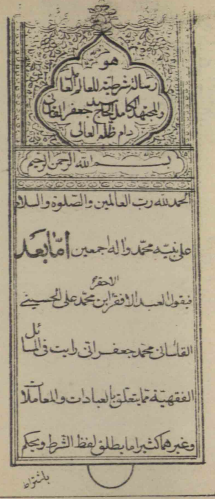 هو
رسالة شرطية للعالم العا
والمجتهد الكامل الحاج جعفر القاسان
دام ظله العالی
بسم الله الرحمن الرحيم
الحمد لله رب العالمين والصلوة والسلام
علی نبيه محمد واله اجمعين اما بعد
فيقول العبد الاحقر الافقر ابن محمد علی الحسيني
القاساني محمد جعفر اني رايت في المسائل
الفقهية مما يتعلق بالعبادات والمعاملات
وغيرهما كثيرا ما يطلق لفظ الشرط ويحكم
باشتراط